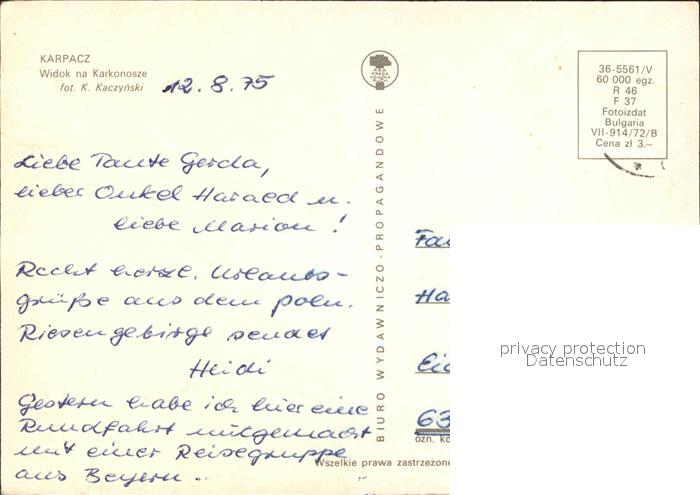 KARPACZ
Widok na Karkonosze
fot. K. Kaczyński
12.8.75
36-5561/V
60 000 egz.
R 46
F 37
Fotoizdat
Bulgaria
VII-914/72/B
Cena zł 3.—
Liebe Tante Gerda,
lieber Onkel Harald u.
liebe Marion!
Recht herzl. Urlaubs-
grüße aus dem poln.
Riesengebirge sendet
Heidi
Gestern habe ich hier eine
Rundfahrt mitgemacht
mit einer Reisegruppe
aus Bayern..
BIURO WYDAWNICZO-PROPAGANDOWE
Fa
Ha
Eic
63
privacy protection
Datenschutz
ozn. ko
Wszelkie prawa zastrzeżone